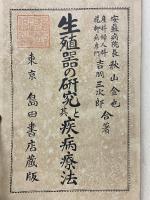 安藝病院長 秋山金也
産科婦人科
花柳病専門 吉岡三次郎 合著
生殖器の研究と其疾病療法
東京 島田書店蔵版